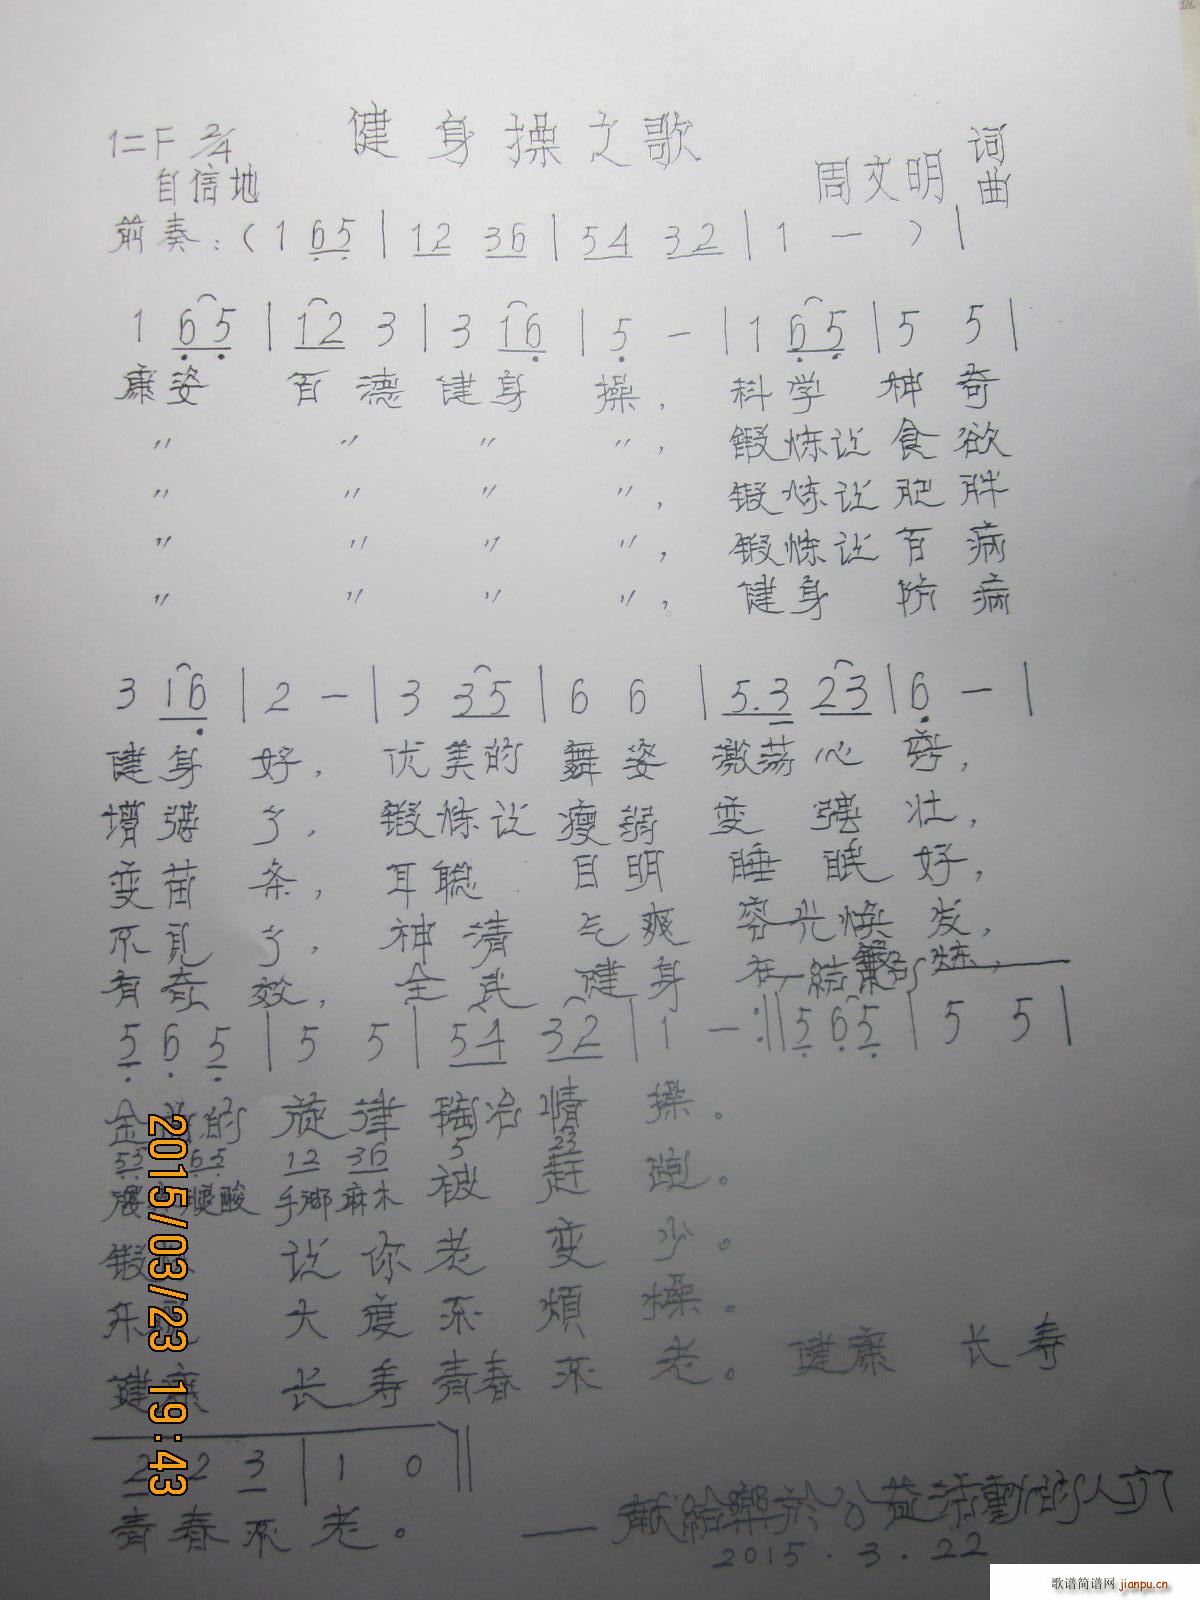 健身操之歌
1=F 2/4
自信地
周文明 词曲
前奏：（1 65 | 12 36 | 54 32 | 1 — ）|
1 65 | 12 3 | 3 16 | 5 — | 1 65 | 5 5 |
康姿 百德健身操， 科学 神奇
〃 〃 〃 〃， 锻炼让食欲
〃 〃 〃 〃， 锻炼让肥胖
〃 〃 〃 〃， 锻炼让百病
〃 〃 〃 〃， 健身 防病
3 16 | 2 — | 3 35 | 6 6 | 5.3 23 | 6 — |
健身 好， 优美的 舞姿 激荡心
增强 了， 锻炼让 瘦弱 变强壮，
变苗条， 耳聪 目明 睡眠好，
不见了， 神清气爽 容光焕发，
有奇效， 全民健身 在
5 6 5 | 5 5 | 54 32 | 1 — :|| 5 6 5 | 5 5 |
的 旋律 陶冶情操。
53 65 12 36 5 23
腿酸 手脚麻木 被赶跑。
锻 让你老变少。
乐 大度不烦燥。
健康 长寿 青春不老。 健康 长寿
2 2 3 | 1 0 ||
青春不老。
—— 献给乐於公益活動的人们
2015.3.22
2015/03/23 19:43
歌谱简谱网 jianpu.cn